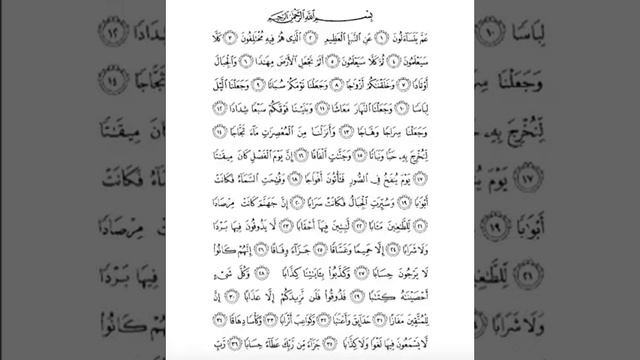 بِسْمِ ٱللَّهِ ٱلرَّحْمَٰنِ ٱلرَّحِيمِ
عَمَّ يَتَسَآءَلُونَ ١ عَنِ ٱلنَّبَإِ ٱلْعَظِيمِ ٢ ٱلَّذِى هُمْ فِيهِ مُخْتَلِفُونَ ٣ كَلَّا
سَيَعْلَمُونَ ٤ ثُمَّ كَلَّا سَيَعْلَمُونَ ٥ أَلَمْ نَجْعَلِ ٱلْأَرْضَ مِهَٰدًا ٦ وَٱلْجِبَالَ
أَوْتَادًا ٧ وَخَلَقْنَٰكُمْ أَزْوَٰجًا ٨ وَجَعَلْنَا نَوْمَكُمْ سُبَاتًا ٩ وَجَعَلْنَا ٱلَّيْلَ
لِبَاسًا ١٠ وَجَعَلْنَا ٱلنَّهَارَ مَعَاشًا ١١ وَبَنَيْنَا فَوْقَكُمْ سَبْعًا شِدَادًا ١٢
وَجَعَلْنَا سِرَاجًا وَهَّاجًا ١٣ وَأَنزَلْنَا مِنَ ٱلْمُعْصِرَٰتِ مَآءً ثَجَّاجًا ١٤
لِّنُخْرِجَ بِهِۦ حَبًّا وَنَبَاتًا ١٥ وَجَنَّٰتٍ أَلْفَافًا ١٦ إِنَّ يَوْمَ ٱلْفَصْلِ كَانَ مِيقَٰتًا
١٧ يَوْمَ يُنفَخُ فِى ٱلصُّورِ فَتَأْتُونَ أَفْوَاجًا ١٨ وَفُتِحَتِ ٱلسَّمَآءُ فَكَانَتْ
أَبْوَٰبًا ١٩ وَسُيِّرَتِ ٱلْجِبَالُ فَكَانَتْ سَرَابًا ٢٠ إِنَّ جَهَنَّمَ كَانَتْ مِرْصَادًا
٢١ لِّلطَّٰغِينَ مَـَٔابًا ٢٢ لَّٰبِثِينَ فِيهَآ أَحْقَابًا ٢٣ لَّا يَذُوقُونَ فِيهَا بَرْدًا
وَلَا شَرَابًا ٢٤ إِلَّا حَمِيمًا وَغَسَّاقًا ٢٥ جَزَآءً وِفَاقًا ٢٦ إِنَّهُمْ كَانُوا۟
لَا يَرْجُونَ حِسَابًا ٢٧ وَكَذَّبُوا۟ بِـَٔايَٰتِنَا كِذَّابًا ٢٨ وَكُلَّ شَىْءٍ
أَحْصَيْنَٰهُ كِتَٰبًا ٢٩ فَذُوقُوا۟ فَلَن نَّزِيدَكُمْ إِلَّا عَذَابًا ٣٠ إِنَّ
لِلْمُتَّقِينَ مَفَازًا ٣١ حَدَآئِقَ وَأَعْنَٰبًا ٣٢ وَكَوَاعِبَ أَتْرَابًا ٣٣ وَكَأْسًا دِهَاقًا ٣٤
لَّا يَسْمَعُونَ فِيهَا لَغْوًا وَلَا كِذَّٰبًا ٣٥ جَزَآءً مِّن رَّبِّكَ عَطَآءً حِسَابًا ٣٦ رَّبِّ